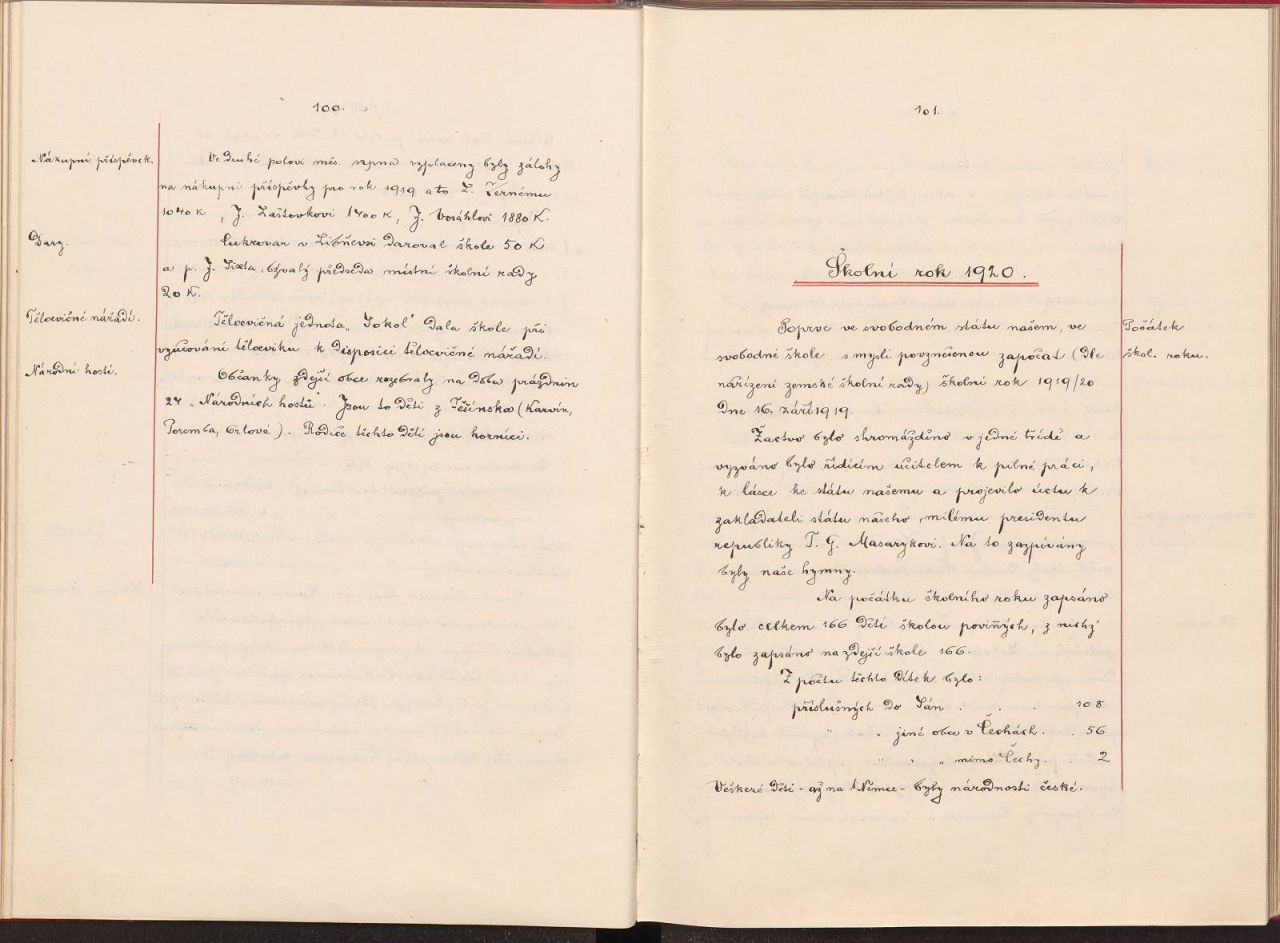 100.
Nákupní příspěvek.
Ve druhé polovi měs. srpna vyplaceny byly zálohy
na nákupní příspěvky pro rok 1919 a to L. Černému
1040 K, J. Laštovkovi 1400 K, J. Vosáhlovi 1880 K.
Dary.
Cukrovar v Libněvsi daroval škole 50 K
a p. J. Sixta, bývalý předseda místní školní rady
20 K.
Tělocvičné nářadí.
Tělocvičná jednota „Sokol" dala škole při
vyučování tělocviku k disposici tělocvičné nářadí.
Národní hosté.
Občanky zdejší obce rozebraly na dobu prázdnin
27 „Národních hostů". Jsou to děti z Těšínska (Karvín,
Poremba, Orlová). Rodiče těchto dětí jsou horníci.
101.
Školní rok 1920.
Počátek
škol. roku.
Poprve ve svobodném státu našem, ve
svobodné škole, s myslí povznešenou započat (dle
nařízení zemské školní rady) školní rok 1919/20
dne 16. září 1919.
Žactvo bylo shromážděno v jedné třídě a
vyzváno bylo řídícím učitelem k pilné práci,
k lásce ke státu našemu a projevilo úctu k
zakladateli státu našeho, milému presidentu
republiky T. G. Masarykovi. Na to zazpívány
byly naše hymny.
Na počátku školního roku zapsáno
bylo celkem 166 dětí školou povinných, z nichž
bylo zapsáno na zdejší škole 166.
Z počtu těchto dítek bylo:
příslušných do Sán . . . 108
" " jiné obce v Čechách . . 56
" " " mimo Čechy . . 2
Veškeré děti - až na 1 Němce - byly národnosti české.